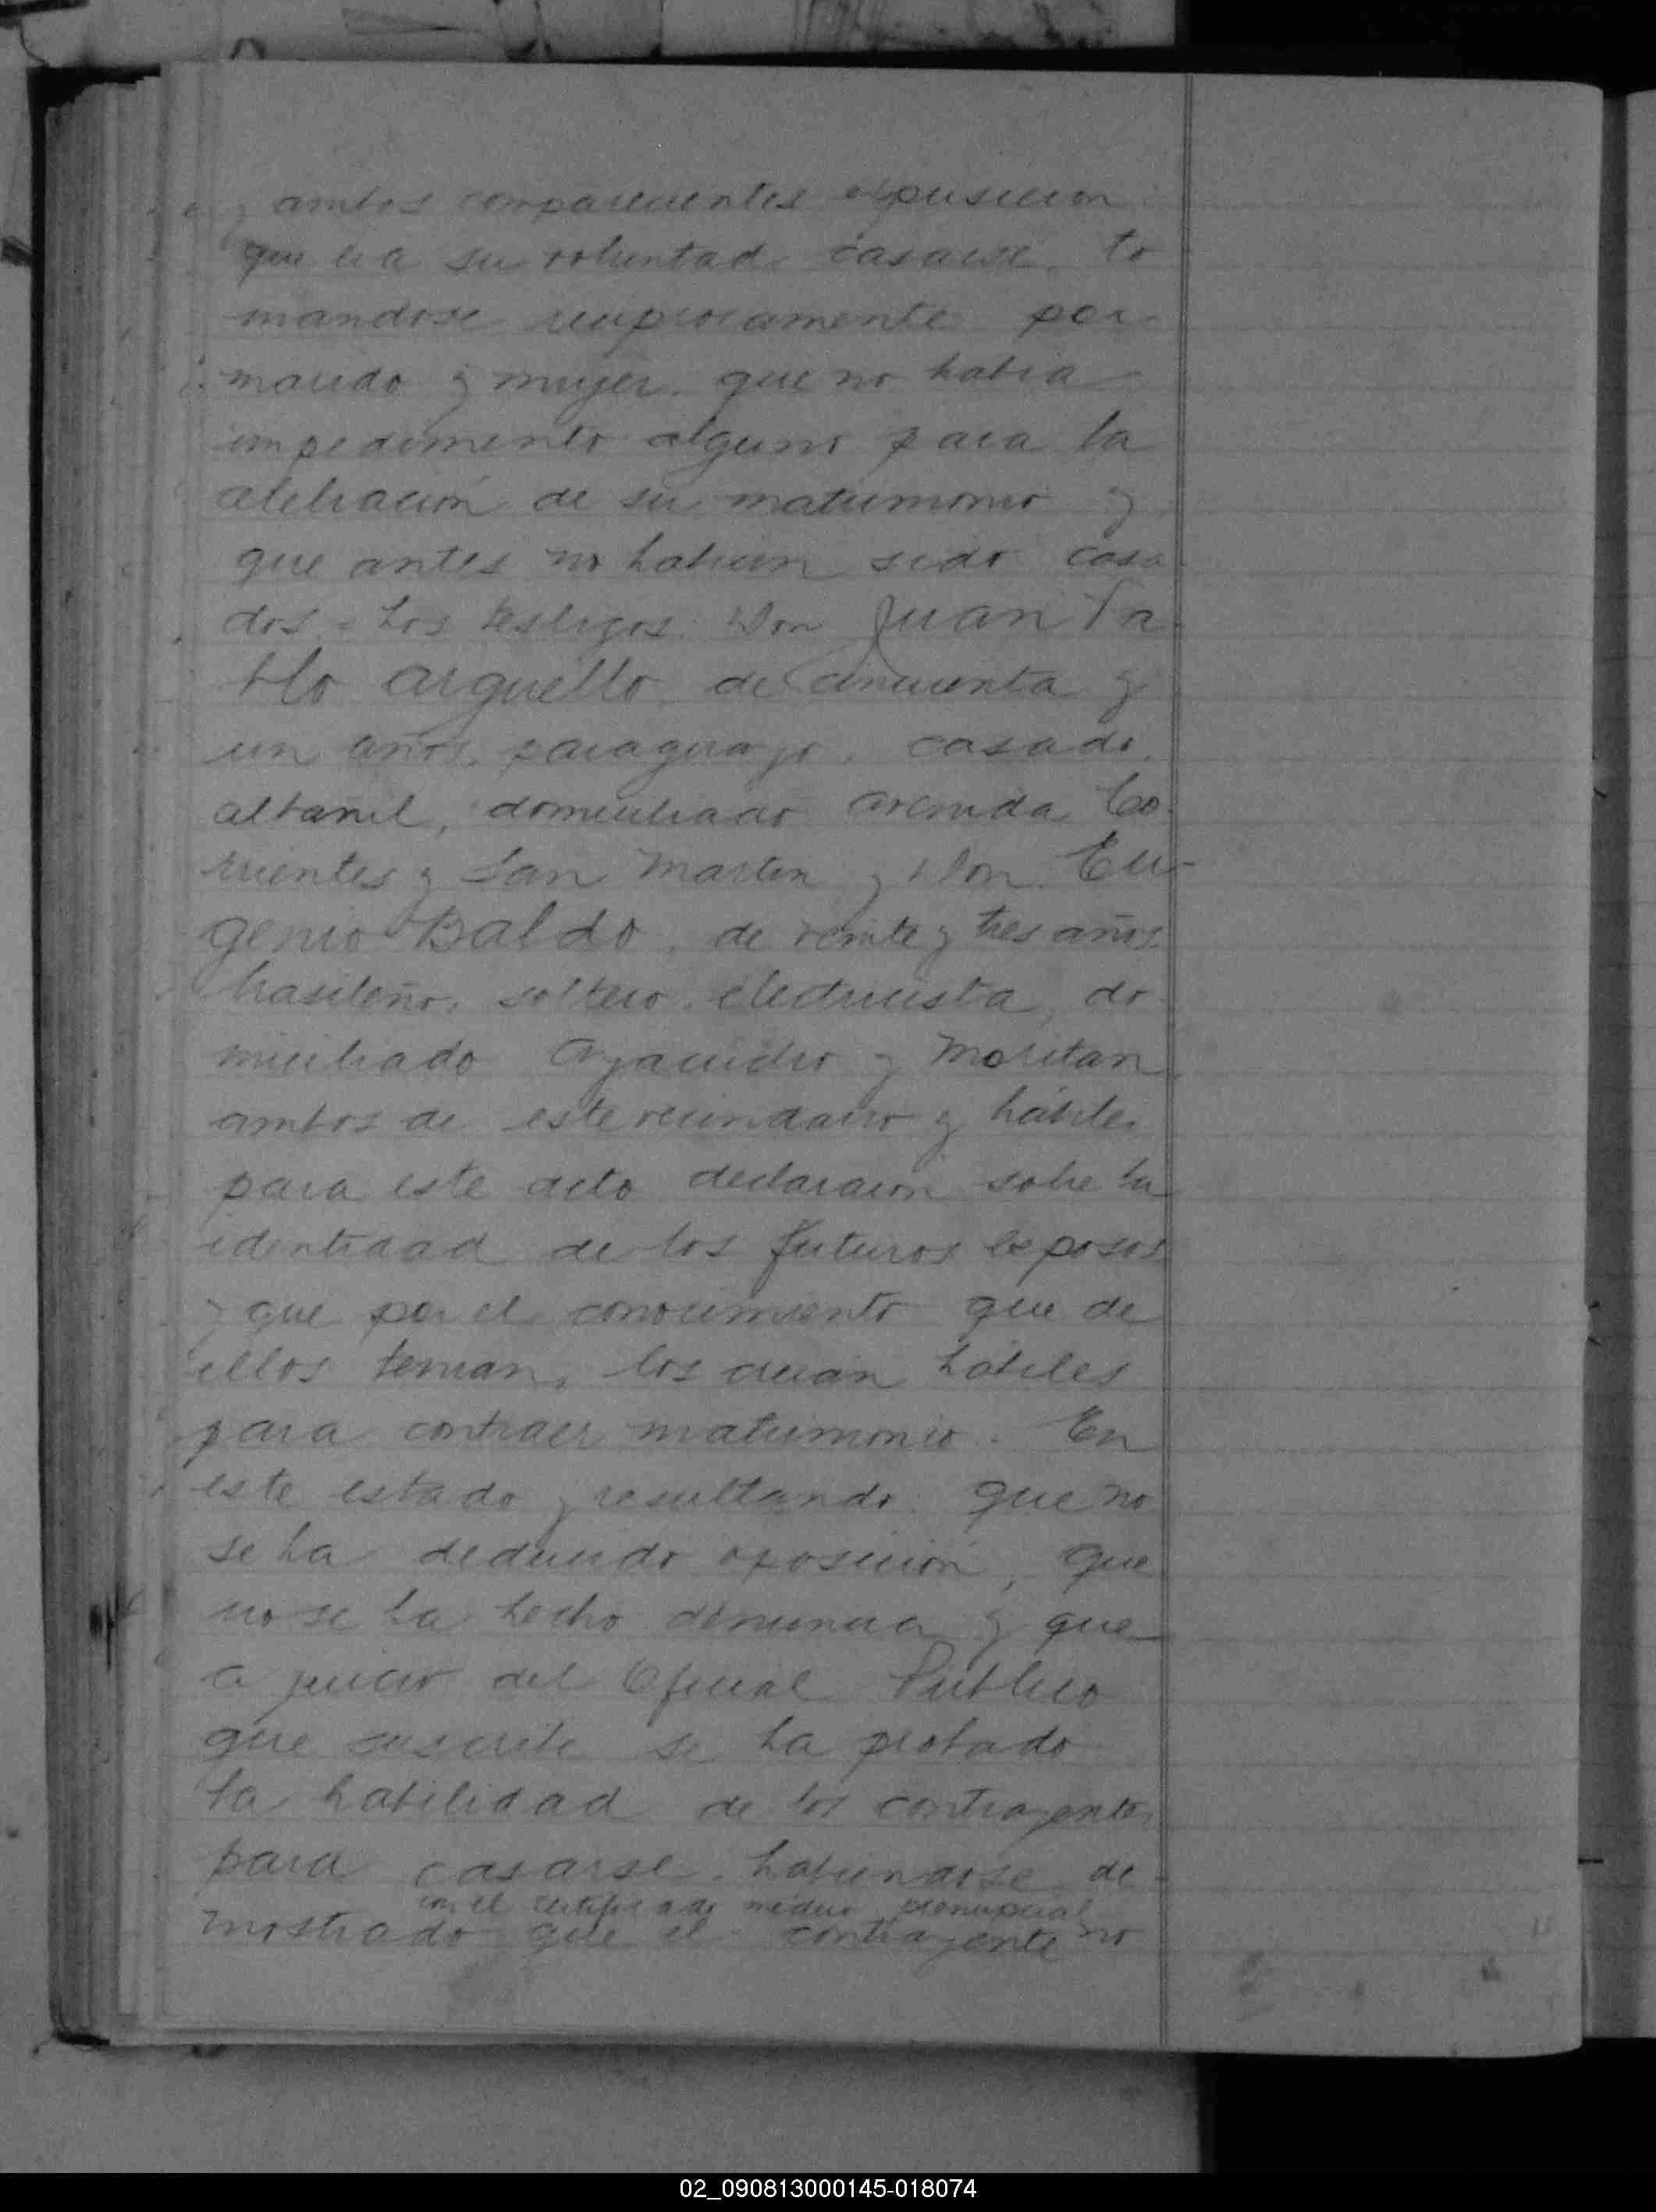 y ambos comparecientes expusieron
que era su voluntad casarse to
mandose reciprocamente por
marido y mujer que no habia
impedimento alguno para la
celebración de su matrimonio y
que antes no habian sido casa
dos = Los testigos Don Juan Pa-
blo Arguello de cincuenta y
un años, paraguayo, casado,
albañil, domiciliado Avenida Co-
rrientes y San Martin y Don Eu-
genio Baldo, de veinte y tres años
brasileño, soltero, electricista, do-
miciliado Ayacucho y
ambos de este vecindario y hábiles
para este acto declararon sobre la
identidad de los futuros esposos
y que por el conocimiento que de
ellos tenian, los creian hábiles
para contraer matrimonio. En
este estado y resultando: que no
se ha deducido oposición, que
no se ha hecho denuncia y que
a juicio del Oficial Público
que suscribe se ha probado
la habilidad de los contrayentes
para casarse, habiendose de-
con el certificado médico prenupcial
mostrado que el contrayente no
02_090813000145-018074